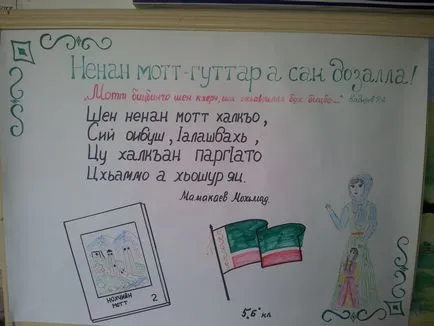 Ненан мотт-гуттар а сан дозалла!
„Мотт бицйинчо шен кхерч, ша схьаваьлла бух бицбо..."
Шен ненан мотт халкъо,
Сий оивуш, Iалашвахь,
Цу халкъан паргIато
Цхьаммо а хьошур яц.
Мамакаев Мохьмад.
НОХЧИЙН
МОТТ
2
5„Б" кл